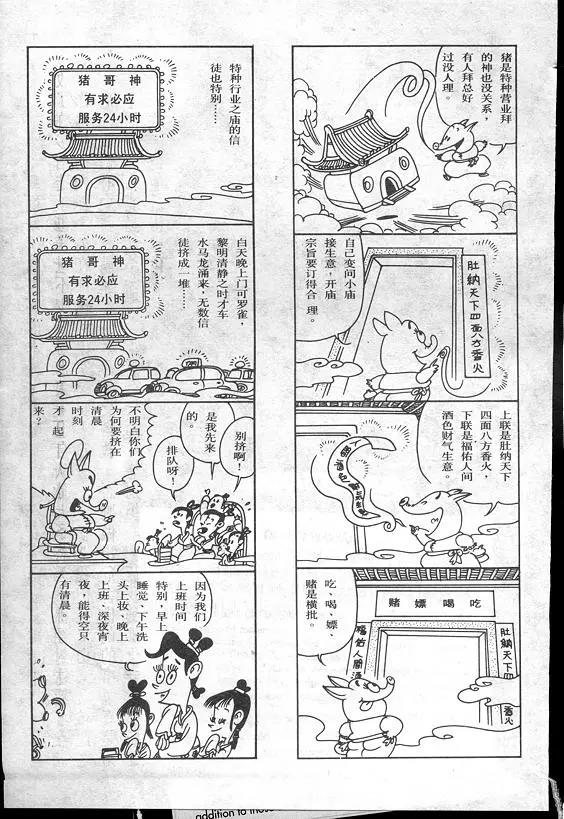 猪是特种营业拜
的神也没关系，
有人拜总好
过没人理。
肚纳天下四面八方香火
自己变间小庙
接生意，开庙
宗旨要订得合理。
上联是肚纳天下
四面八方香火，
下联是福佑人间
酒色财气生意。
吃喝嫖赌
肚纳天下四
香火
福佑人間酒
吃、喝、嫖、
赌是横批。
特种行业之庙的信
徒也特别……
猪哥神
有求必应
服务24小时
白天晚上门可罗雀，
黎明清静之时才车
水马龙涌来，无数信
徒挤成一堆……
猪哥神
有求必应
服务24小时
别挤啊！
是我先来
的。
排队呀！
不明白你们
为何要挤在
清晨
时刻
才一起
来？
因为我们
上班时间
特别，早上
睡觉、下午洗
头上妆、晚上
上班、深夜宵
夜，能得空只
有清晨。
addition to those